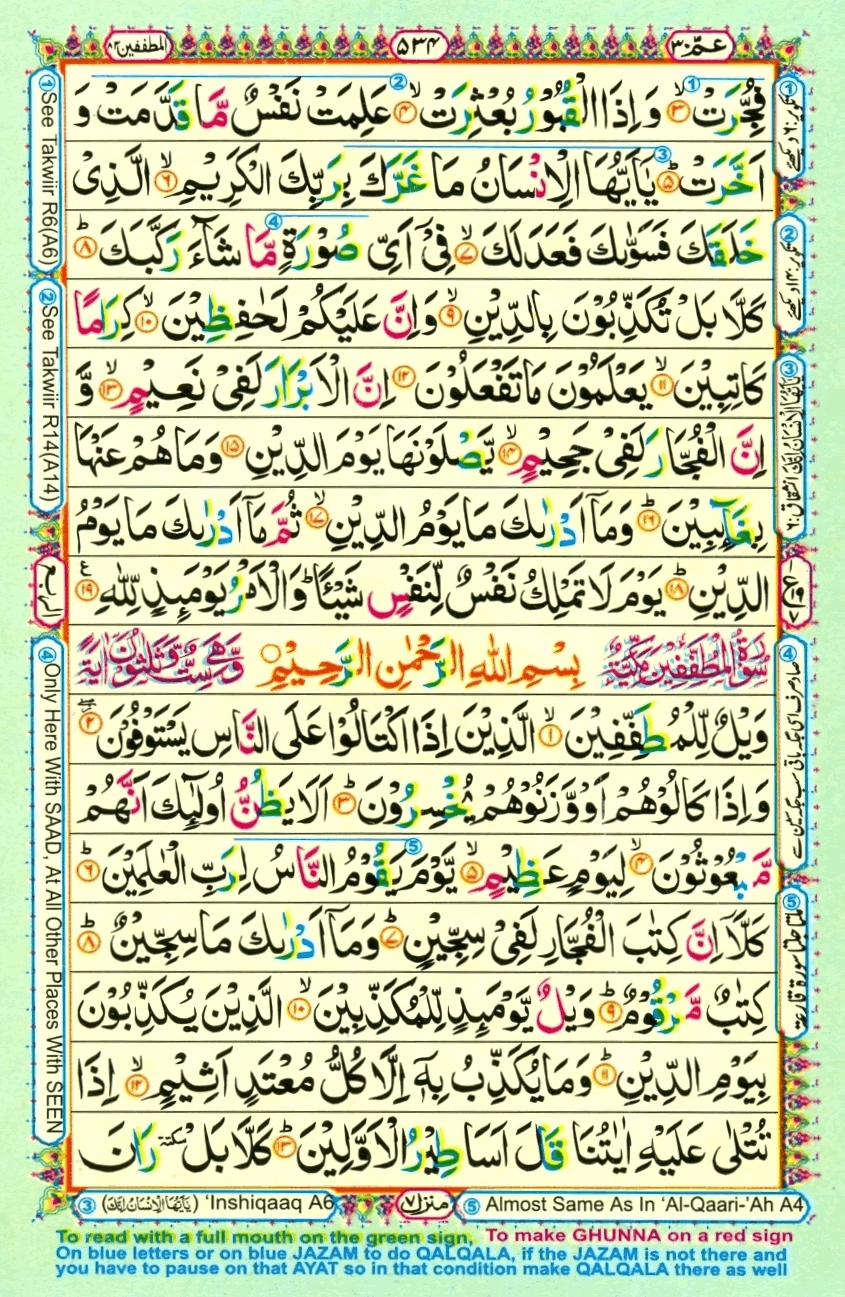 عمّ ٣٠
٥٣٤
المطففين ٨٣
فُجِّرَتْ ۙ﴿۳﴾ وَاِذَا الْقُبُوْرُ بُعْثِرَتْ ۙ﴿۴﴾ عَلِمَتْ نَفْسٌ مَّا قَدَّمَتْ وَ
اَخَّرَتْ ؕ﴿۵﴾ يٰۤاَيُّهَا الْاِنْسَانُ مَا غَرَّكَ بِرَبِّكَ الْكَرِيْمِ ۙ﴿۶﴾ الَّذِىْ
خَلَقَكَ فَسَوّٰىكَ فَعَدَلَكَ ۙ﴿۷﴾ فِىْۤ اَىِّ صُوْرَةٍ مَّا شَآءَ رَكَّبَكَ ؕ﴿۸﴾
كَلَّا بَلْ تُكَذِّبُوْنَ بِالدِّيْنِ ۙ﴿۹﴾ وَاِنَّ عَلَيْكُمْ لَحٰفِظِيْنَ ۙ﴿۱۰﴾ كِرَامًا
كَاتِبِيْنَ ۙ﴿۱۱﴾ يَعْلَمُوْنَ مَا تَفْعَلُوْنَ ﴿۱۲﴾ اِنَّ الْاَبْرَارَ لَفِىْ نَعِيْمٍ ۙ﴿۱۳﴾ وَّ
اِنَّ الْفُجَّارَ لَفِىْ جَحِيْمٍ ۙ﴿۱۴﴾ يَّصْلَوْنَهَا يَوْمَ الدِّيْنِ ﴿۱۵﴾ وَمَا هُمْ عَنْهَا
بِغَآئِبِيْنَ ؕ﴿۱۶﴾ وَمَاۤ اَدْرٰىكَ مَا يَوْمُ الدِّيْنِ ۙ﴿۱۷﴾ ثُمَّ مَاۤ اَدْرٰىكَ مَا يَوْمُ
الدِّيْنِ ؕ﴿۱۸﴾ يَوْمَ لَا تَمْلِكُ نَفْسٌ لِّنَفْسٍ شَيْئًا ؕ وَالْاَمْرُ يَوْمَئِذٍ لِّلّٰهِ ﴿۱۹﴾
سُوْرَةُ الْمُطَفِّفِيْنَ مَكِّيَّةٌ
بِسْمِ اللّٰهِ الرَّحْمٰنِ الرَّحِيْمِ
وَّهِىَ سِتٌّ وَّثَلٰثُوْنَ اٰيَةً
وَيْلٌ لِّلْمُطَفِّفِيْنَ ۙ﴿۱﴾ الَّذِيْنَ اِذَا اكْتَالُوْا عَلَى النَّاسِ يَسْتَوْفُوْنَ ﴿۲﴾
وَاِذَا كَالُوْهُمْ اَوْ وَّزَنُوْهُمْ يُخْسِرُوْنَ ؕ﴿۳﴾ اَلَا يَظُنُّ اُولٰٓئِكَ اَنَّهُمْ
مَّبْعُوْثُوْنَ ۙ﴿۴﴾ لِيَوْمٍ عَظِيْمٍ ۙ﴿۵﴾ يَّوْمَ يَقُوْمُ النَّاسُ لِرَبِّ الْعٰلَمِيْنَ ؕ﴿۶﴾
كَلَّاۤ اِنَّ كِتٰبَ الْفُجَّارِ لَفِىْ سِجِّيْنٍ ؕ﴿۷﴾ وَمَاۤ اَدْرٰىكَ مَا سِجِّيْنٌ ؕ﴿۸﴾
كِتٰبٌ مَّرْقُوْمٌ ؕ﴿۹﴾ وَيْلٌ يَّوْمَئِذٍ لِّلْمُكَذِّبِيْنَ ۙ﴿۱۰﴾ الَّذِيْنَ يُكَذِّبُوْنَ
بِيَوْمِ الدِّيْنِ ؕ﴿۱۱﴾ وَمَا يُكَذِّبُ بِهٖۤ اِلَّا كُلُّ مُعْتَدٍ اَثِيْمٍ ۙ﴿۱۲﴾ اِذَا
تُتْلٰى عَلَيْهِ اٰيٰتُنَا قَالَ اَسَاطِيْرُ الْاَوَّلِيْنَ ؕ﴿۱۳﴾ كَلَّا بَلْ سكتة رَانَ
① See Takwiir R6(A6)
② See Takwiir R14(A14)
الربع
④ Only Here With SAAD, At All Other Places With SEEN
③ (يٰۤاَيُّهَا الْاِنْسَانُ اِنَّكَ) 'Inshiqaaq A6
منزل ٧
⑤ Almost Same As In 'Al-Qaari-'Ah A4
To read with a full mouth on the green sign, To make GHUNNA on a red sign
On blue letters or on blue JAZAM to do QALQALA, if the JAZAM is not there and
you have to pause on that AYAT so in that condition make QALQALA there as well